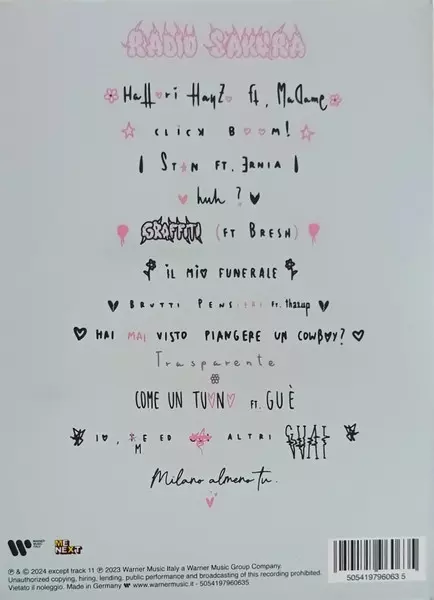 RADIO SAKURA
HattOri HanZo ft. MaDame
CLICK BOOM!
STAN FT. ERNIA
huh?
GRAFFITI (FT BRESH)
IL MIO FUNERALE
BRUTTI PENSIERI FT. thasup
HAI MAI VISTO PIANGERE UN COWBOY?
Trasparente
COME UN TUONO FT. GUÈ
IO, ME ED ALTRI GUAI
Milano almeno tu.
ME NEXT
℗ & © 2024 except track 11 ℗ 2023 Warner Music Italy a Warner Music Group Company.
Unauthorized copying, hiring, lending, public performance and broadcasting of this recording prohibited.
Vietato il noleggio. Made in Germany www.warnermusic.it 5054197960635
505419796063 5